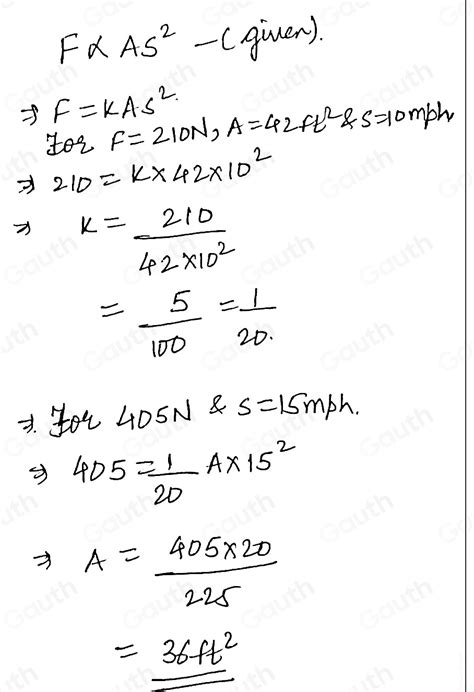 F ∝ AS² – (given).
⇒ F = KAS².
For F = 210N, A = 42ft² & S = 10mph
⇒ 210 = K × 42 × 10²
⇒ K = 210 / 42×10²
= 5/100 = 1/20.
⇒. For 405N & S = 15mph.
⇒ 405 = 1/20 A × 15²
⇒ A = 405×20 / 225
= 36ft²